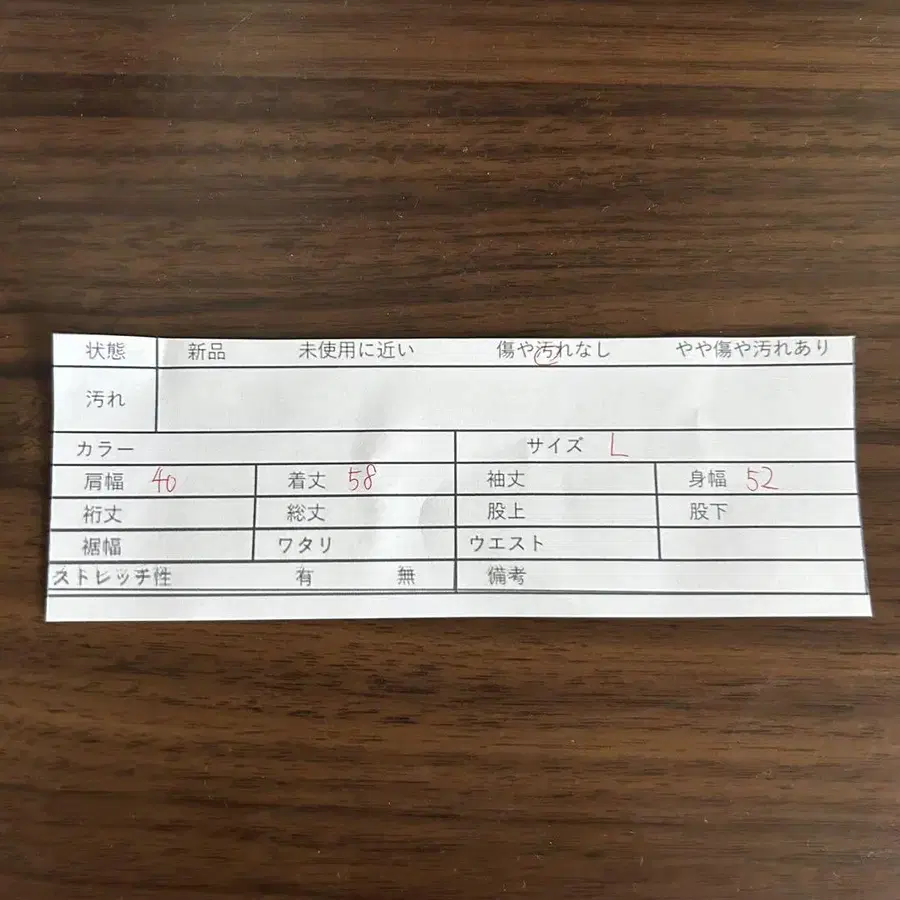 状態 新品 未使用に近い 傷や汚れなし やや傷や汚れあり
汚れ
カラー サイズ L
肩幅 40 着丈 58 袖丈 身幅 52
裄丈 総丈 股上 股下
裾幅 ワタリ ウエスト
ストレッチ性 有 無 備考